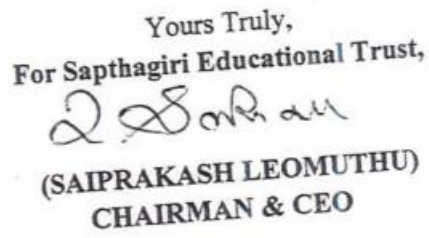 Yours Truly,
For Sapthagiri Educational Trust,
(SAIPRAKASH LEOMUTHU)
CHAIRMAN & CEO